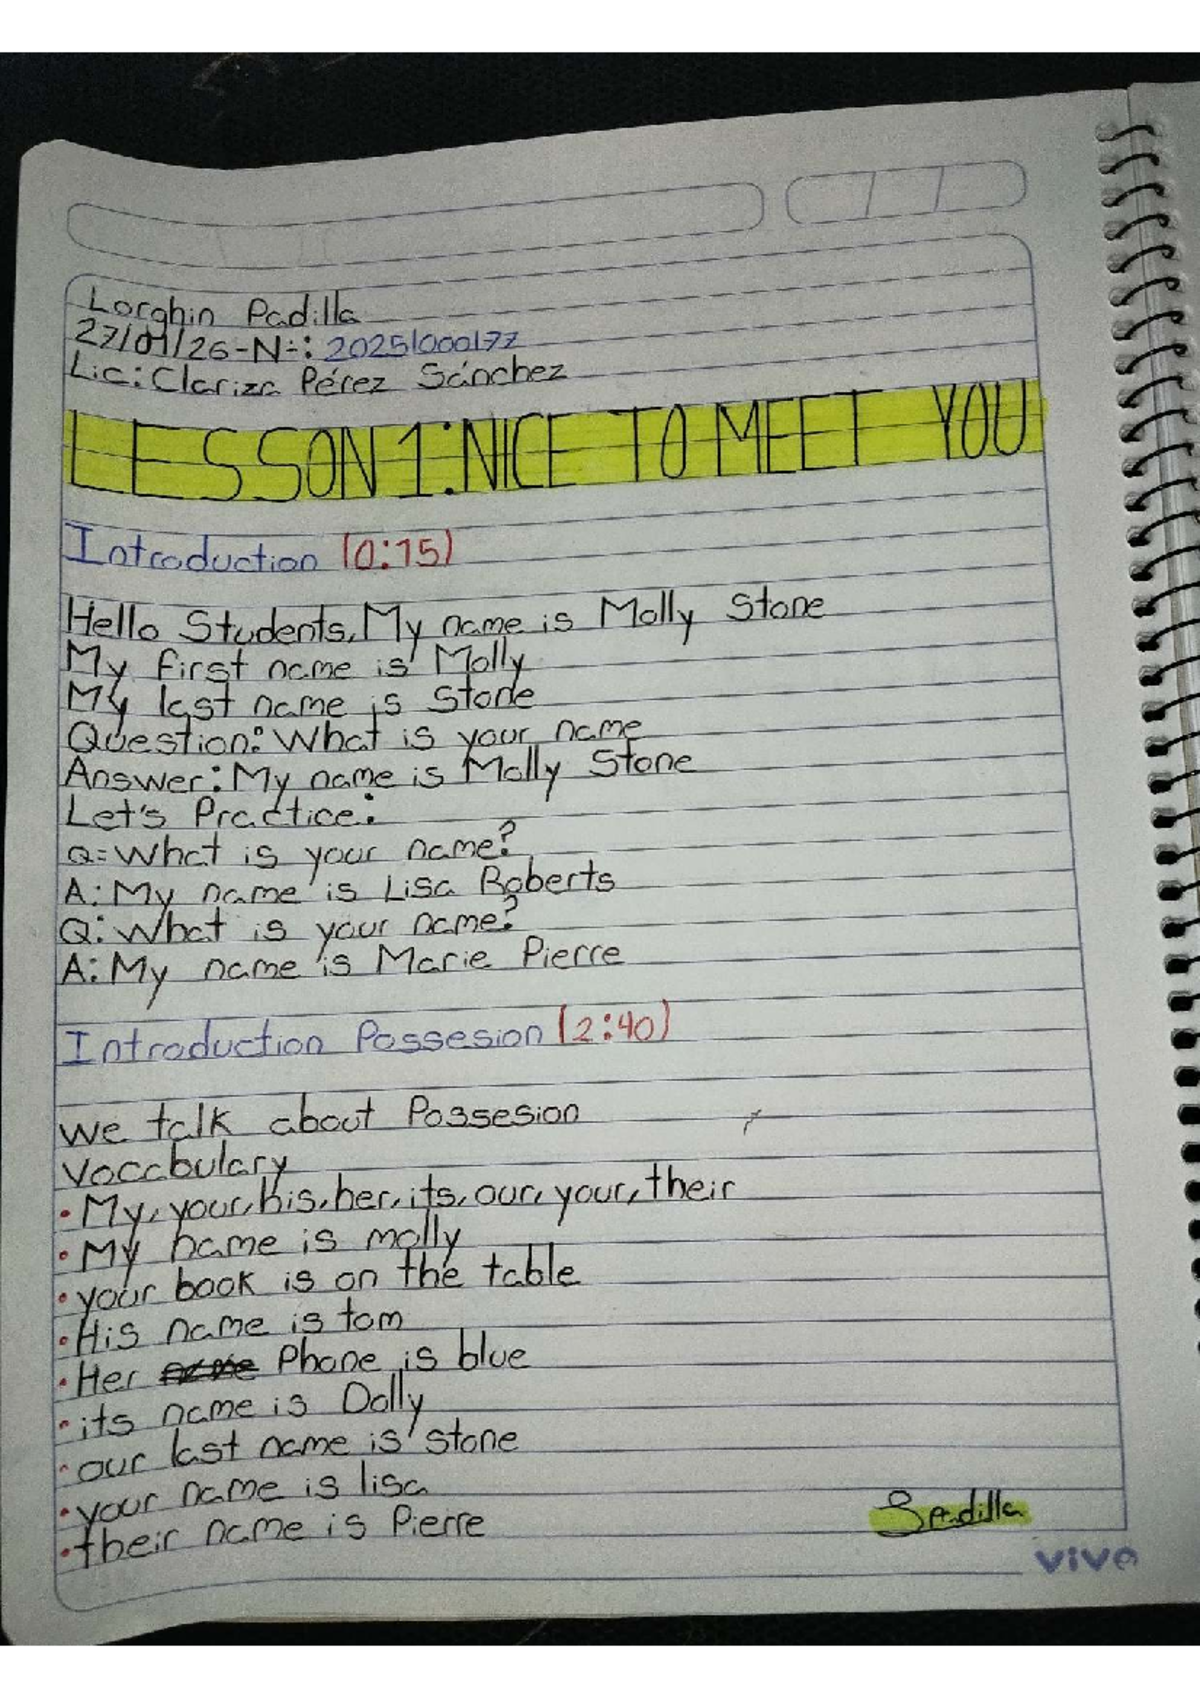 Lorghin Padilla
27/01/26-N-: 20251000177
Lic: Clariza Pérez Sánchez
LESSON 1: NICE TO MEET YOU
Introduction (0:15)
Hello Students, My name is Molly Stone
My first name is Molly
My last name is Stone
Question: What is your name
Answer: My name is Molly Stone
Let's Practice:
Q= What is your name?
A: My name is Lisa Roberts
Q: What is your name?
A: My name is Marie Pierre
Introduction Possesion (2:40)
we talk about Possesion
Vocabulary
• My, your, his, her, its, our, your, their
• My name is molly
• your book is on the table
• His name is tom
• Her Phone is blue
• its name is Dolly
• our last name is stone
• your name is lisa
• their name is Pierre
Padilla
vivo